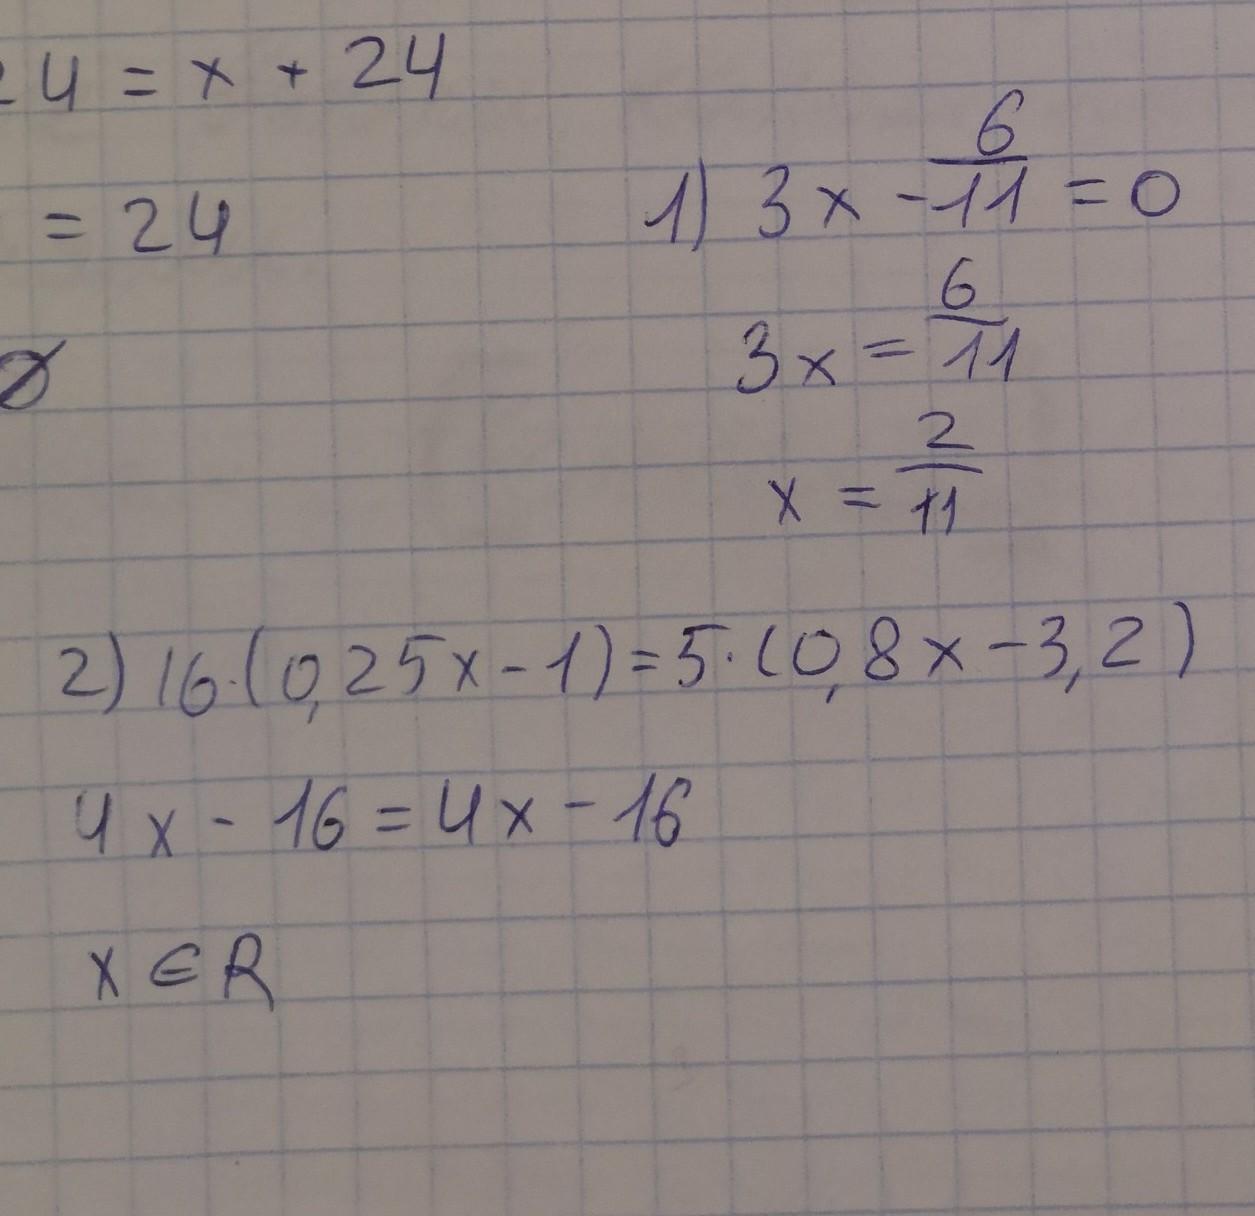 24 = x + 24
= 24
∅
1) 3x - 6/11 = 0
3x = 6/11
x = 2/11
2) 16·(0,25x - 1) = 5·(0,8x - 3,2)
4x - 16 = 4x - 16
x ∈ R